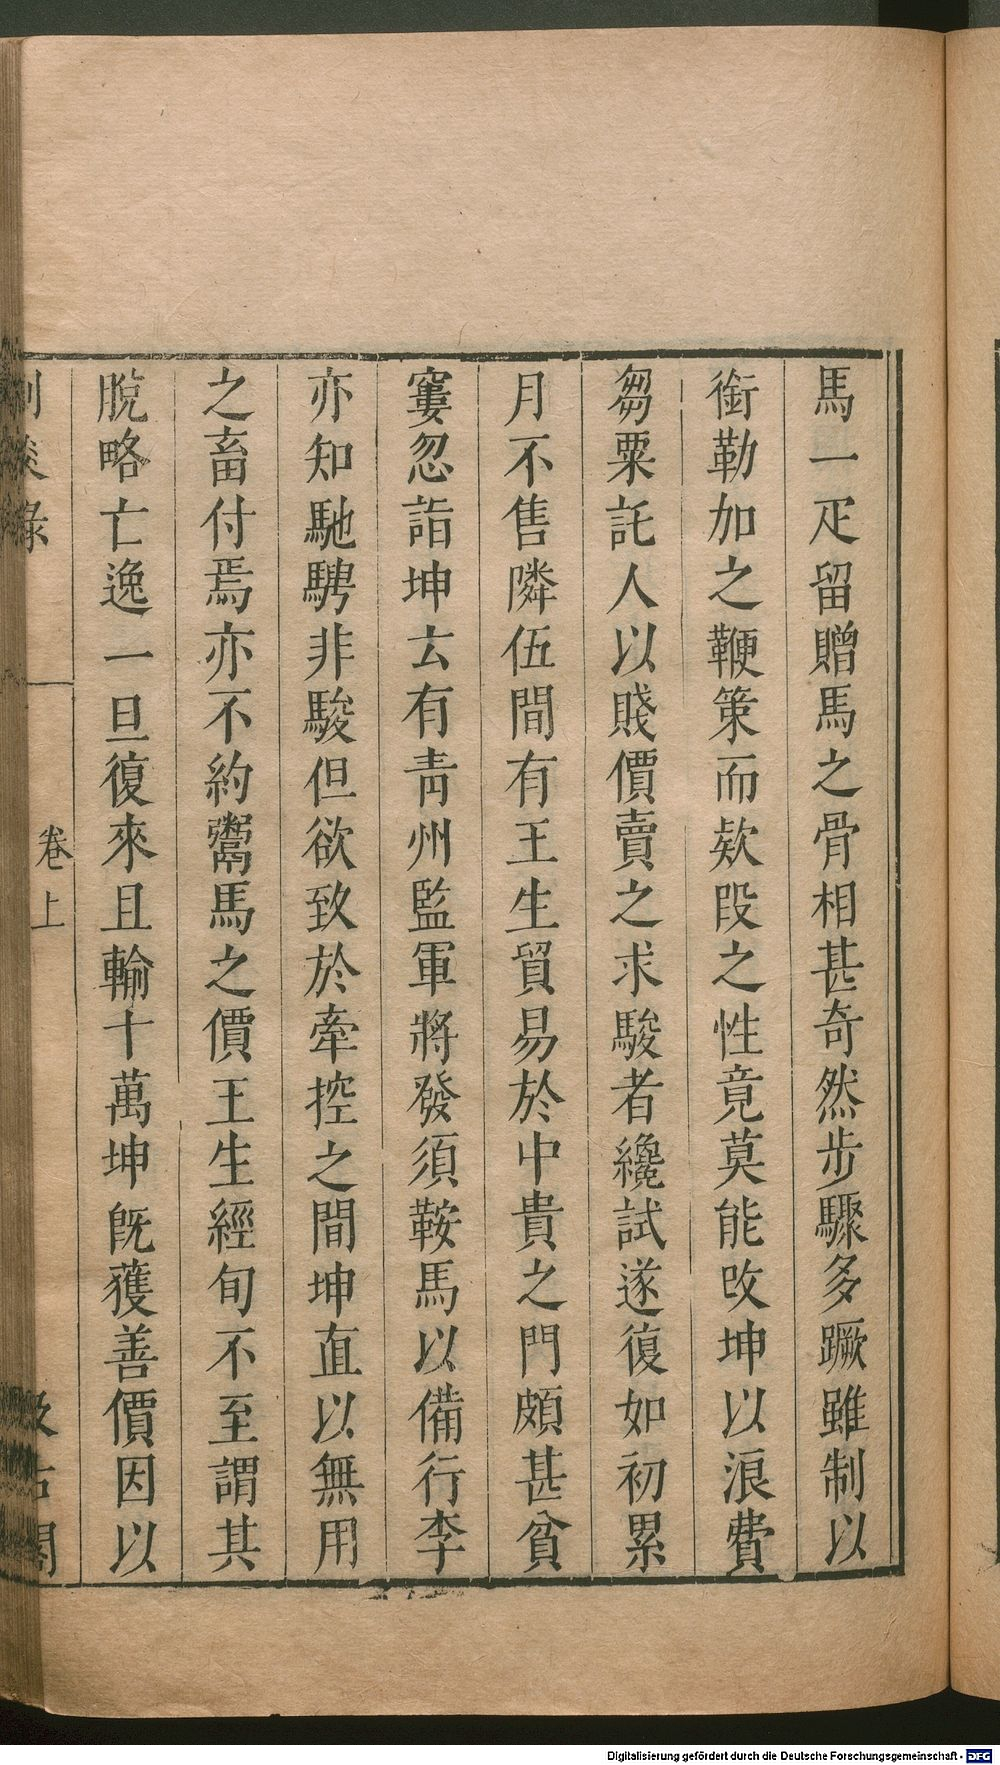 馬一疋留贈馬之骨相甚奇然步驟多蹶雖制以
銜勒加之鞭策而欵段之性竟莫能改坤以浪費
芻粟託人以賤價賣之求駿者纔試遂復如初累
月不售隣伍間有王生貿易於中貴之門頗甚貧
窶忽詣坤云有青州監軍將發須鞍馬以備行李
亦知馳騁非駿但欲致於牽控之間坤直以無用
之畜付焉亦不約鬻馬之價王生經旬不至謂其
脫略亡逸一旦復來且輸十萬坤旣獲善價因以
劇談錄
卷上
汲古閣
Digitalisierung gefördert durch die Deutsche Forschungsgemeinschaft - DFG